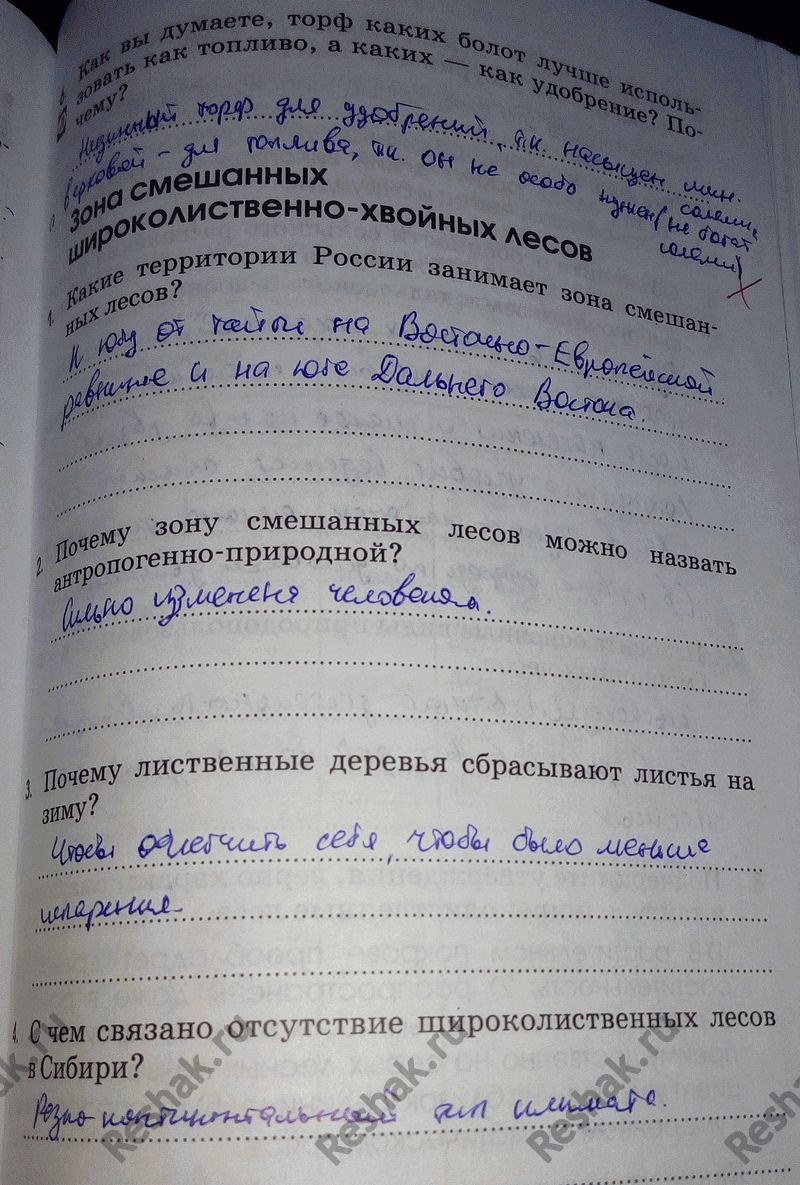 Как вы думаете, торф каких болот лучше исполь-
зовать как топливо, а каких — как удобрение? По-
чему?
Низинный торф для удобрений, т.к. насыщен мин.
солями,
а верховой - для топлива, т.к. он не особо нужен (не богат
солями)
ЗОНА СМЕШАННЫХ
ШИРОКОЛИСТВЕННО-ХВОЙНЫХ ЛЕСОВ
1. Какие территории России занимает зона смешан-
ных лесов?
К югу от тайги на Восточно-Европейской
равнине и на юге Дальнего Востока.
2. Почему зону смешанных лесов можно назвать
антропогенно-природной?
Сильно изменена человеком.
3. Почему лиственные деревья сбрасывают листья на
зиму?
Чтобы облегчить себя, чтобы было меньше
испарения
4. С чем связано отсутствие широколиственных лесов
в Сибири?
Резко-континентальный тип климата.
Reshak.ru
Reshak.ru
Reshak.ru